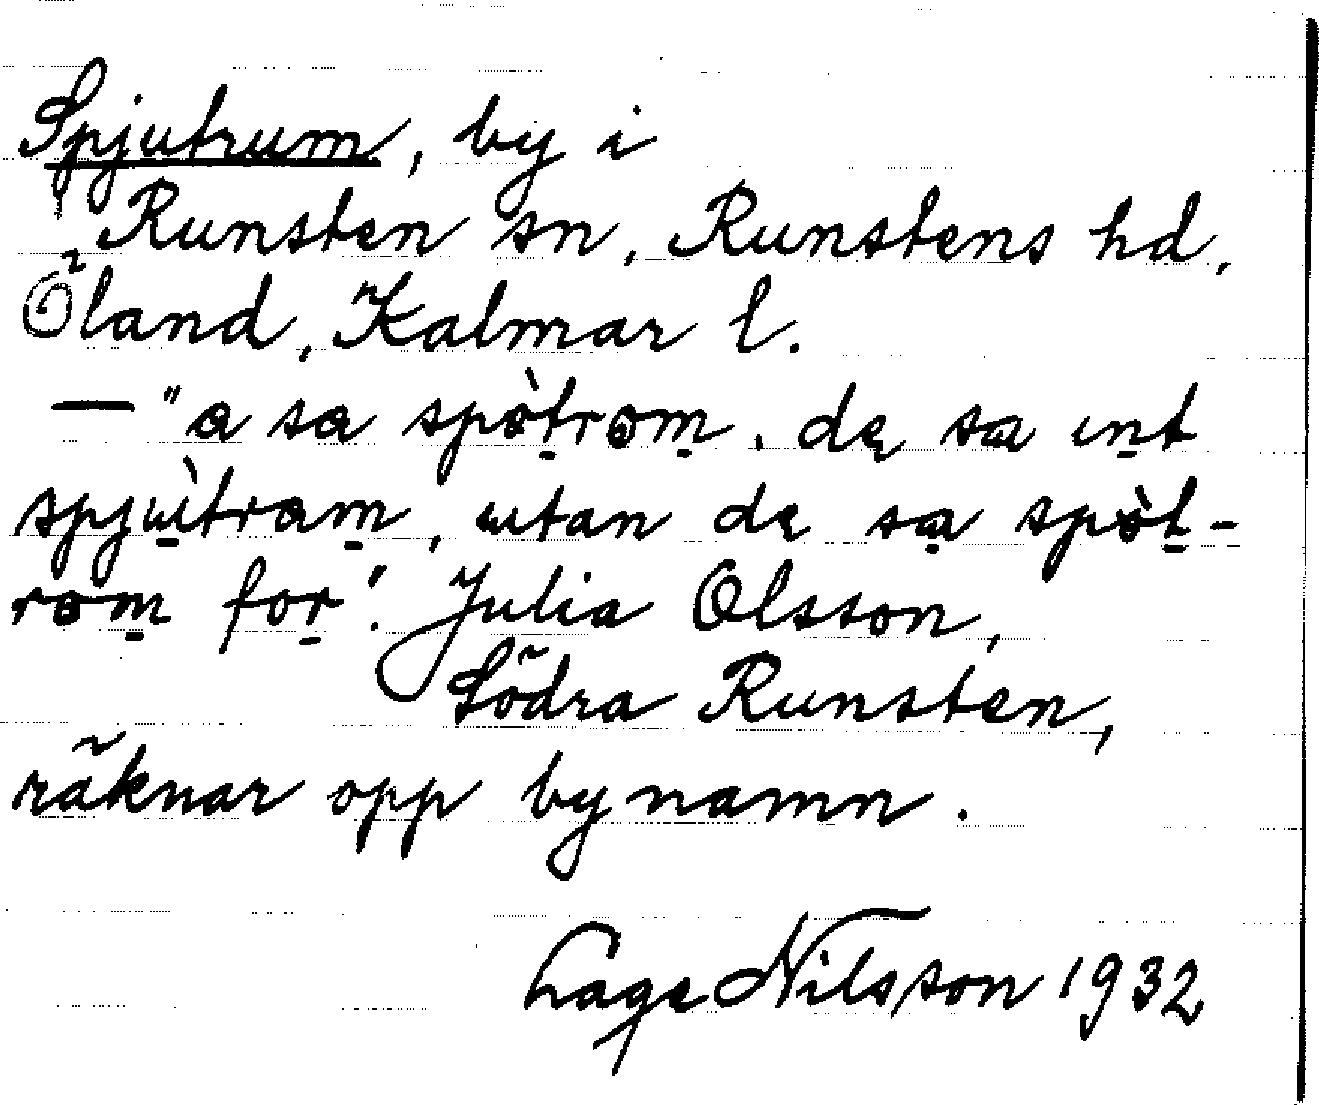 Spjutrum, by i
Runsten sn, Runstens hd,
Öland, Kalmar l.
— "a sa spòtrom, de sa int
spjùtram, utan de sa spòt-
rom for". Julia Olsson,
Södra Runsten,
räknar opp bynamn.
Lage Nilsson 1932